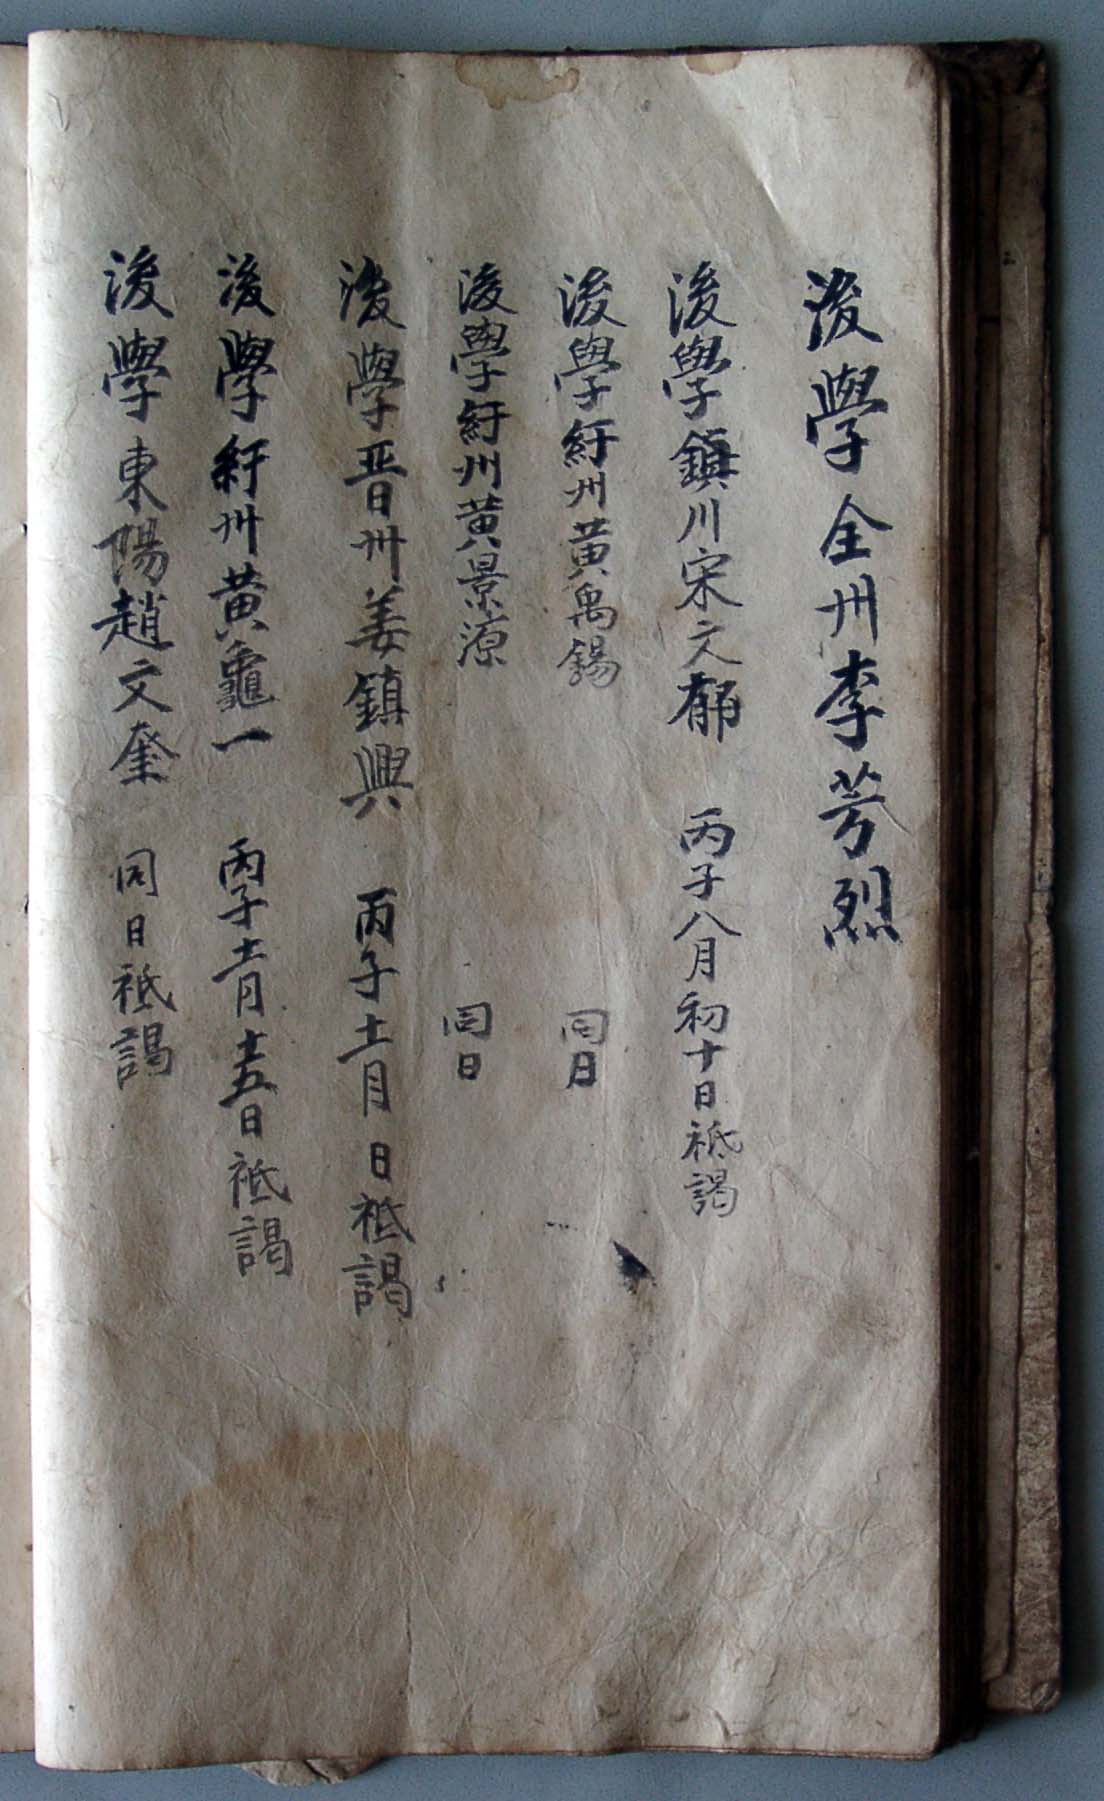 後學全州李芳烈
後學鎭川宋文郁 丙子八月初十日祗謁
後學紆州黃禹錫 同日
後學紆州黃景源 同日
後學晋州姜鎭興 丙子十一月 日祗謁
後學紆州黃龜一 丙子十一月十五日祗謁
後學東陽趙文奎 同日祗謁